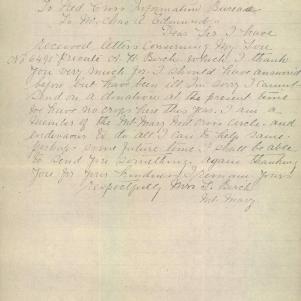 To Red Cross Information Bureau
To Mr Chas E Edmunds
Dear Sir I have
Received letters Concerning My Son
No 6491 Private A. H Birch which I thank
you very much for. I should have answered
before but have been ill. I'm sorry I cannot
Send on a donation at the present time
for have no crops this this year. I am a
member of the Mt Mary Red Cross circle and
endeavour to do all I can to help same
Perhaps some future time I shall be able
to Send you Something. again thanking
you for your kindness I remain yours
Respectfully Mrs L. Birch
Mt Mary